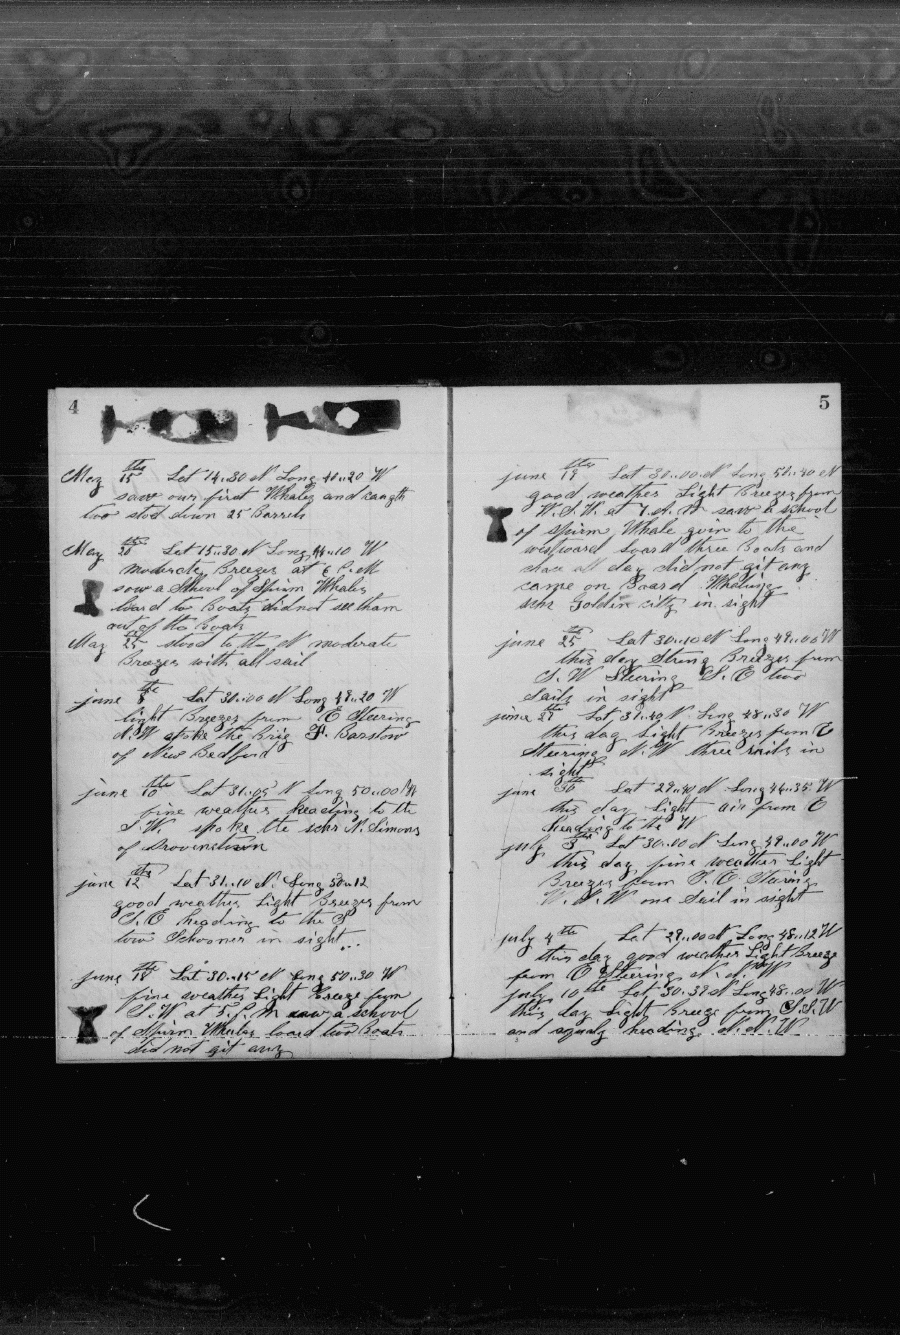 4
May 15th Lat 14..30 N Long 40..20 W
saw our first Whales and caugth
too stod down 25 Barrels
May 20th Lat 15..30 N Long 44..10 W
moderate Breezes at 6 P.M
sow a School of Spirm Whales
loard to Boats did not see tham
out of the boats
May 25th stood to the N moderate
Breezes with all sail
june 8th Lat 31..00 N Long 49..20 W
light Breezes from E Steering
N.W spoke the Brig F. Barstow
of New Bedford
june 10th Lat 31..05 N Long 50..00 W
fine weather heading to the
S.W. spoke the schr N. Simons
of Provinctown
june 12th Lat 31..10 N. Long 50..12
good weather Light Breezes from
S.E heading to the S
tow Schooner in sight..
june 18th Lat 30..15 N Long 50..30 W
fine weather Light Breeze from
S.W at 5 P M saw a school
of Spirm Whales loard two Boats
did not git any
5
june 19th Lat 30..00 N Long 50..40 N
good weather Light Breezes from
W.S.W. at 7 A. M saw a school
of Spirm Whale goin to the
westward loard three Boats and
chace all day did not git any
came on Board Whaling
schr Golden city in sight
june 25th Lat 30..10 N Long 49..00 W
this day Strong Breezes from
S.W Steering S.E two
Sails in sight
june 27th Lat 31..40 N Long 48..30 W
this day Light Breezes from E
Steering N.W three sails in
sight
june 30th Lat 29..40 N Long 46..35 W
this day Light air from E
heading to the W
july 3th Lat 30..00 N Long 49..00 W
this day fine weather Light
Breezes from S.E. Staring
W.S.W one Sail in sight
july 4th Lat 29..00 N Long 48..12 W
this day good weather Light Breeze
from E Steering N.N.W
july 10th Lat 30..39 N Long 48..00 W
this day Light Breeze from S.S.W
and squaly heading N.N.W.